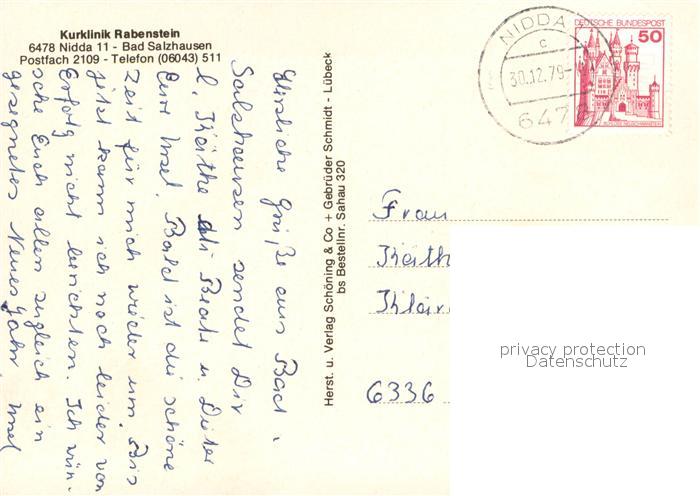 Kurklinik Rabenstein
6478 Nidda 11 - Bad Salzhausen
Postfach 2109 - Telefon (06043) 511
Herzliche Grüße aus Bad
Salzhausen sendet Dir
l. Käthe, Beate u. Dieter
Eure Ursel. Bald ist die schöne
Zeit für mich wieder um. Bis
jetzt kann ich noch leider von
Erfolg nicht berichten. Ich wün-
sche Euch allen zugleich ein
gesegnetes Neues Jahr. Ursel
Herst. u. Verlag Schöning & Co + Gebrüder Schmidt - Lübeck
bs Bestellnr. Sahau 320
NIDDA
c
30.12.79
6478
DEUTSCHE BUNDESPOST
50
Frau
Käth
Klar
6336
privacy protection
Datenschutz